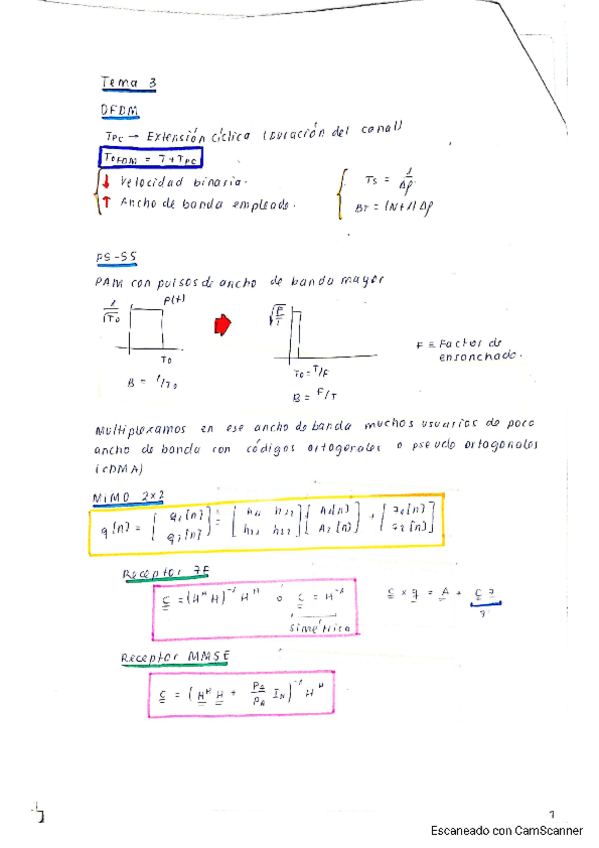 Tema 3
OFDM
TPC → Extensión cíclica (Duración del canal)
TOFDM = T + TPC
↓ Velocidad binaria.
↑ Ancho de banda empleado.
Ts = 1/Δf
BT = (N+1)Δf
PS-SS
PAM con pulsos de ancho de banda mayor
1/√T0
p(t)
T0
B = 1/T0
√F/T
T0 = T/F
B = F/T
F ≡ Factor de
ensanchado.
Multiplexamos en ese ancho de banda muchos usuarios de poco
ancho de banda con códigos ortogonales o pseudo ortogonales
(CDMA)
MIMO 2x2
q[n] = [q1[n] q2[n]] = [h11 h12 h21 h22] [A1[n] A2[n]] + [z1[n] z2[n]]
Receptor ZF
C = (H^H H)^-1 H^H ó C = H^-1
simétrica
C × q = A + C z
Receptor MMSE
C = (H^H H + IN)^-1 H^H
1
Escaneado con CamScanner